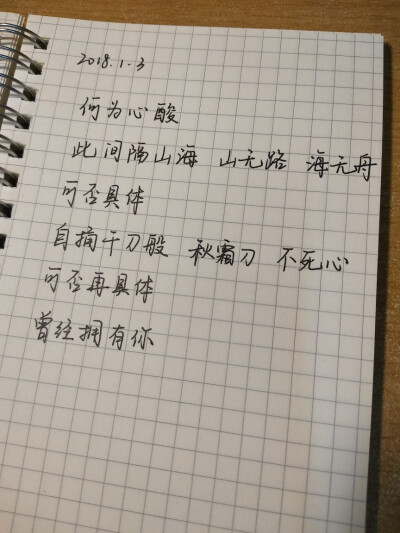 2018.1.3
何为心酸
此间隔山海 山无路 海无舟
可否具体
自捅千刀般 秋霜刀 不死心
可否再具体
曾经拥有你